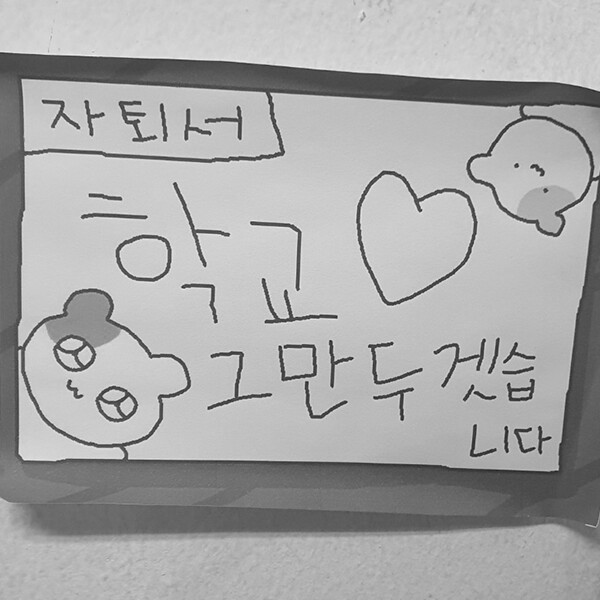 자퇴서
학교
그만두겟습
니다